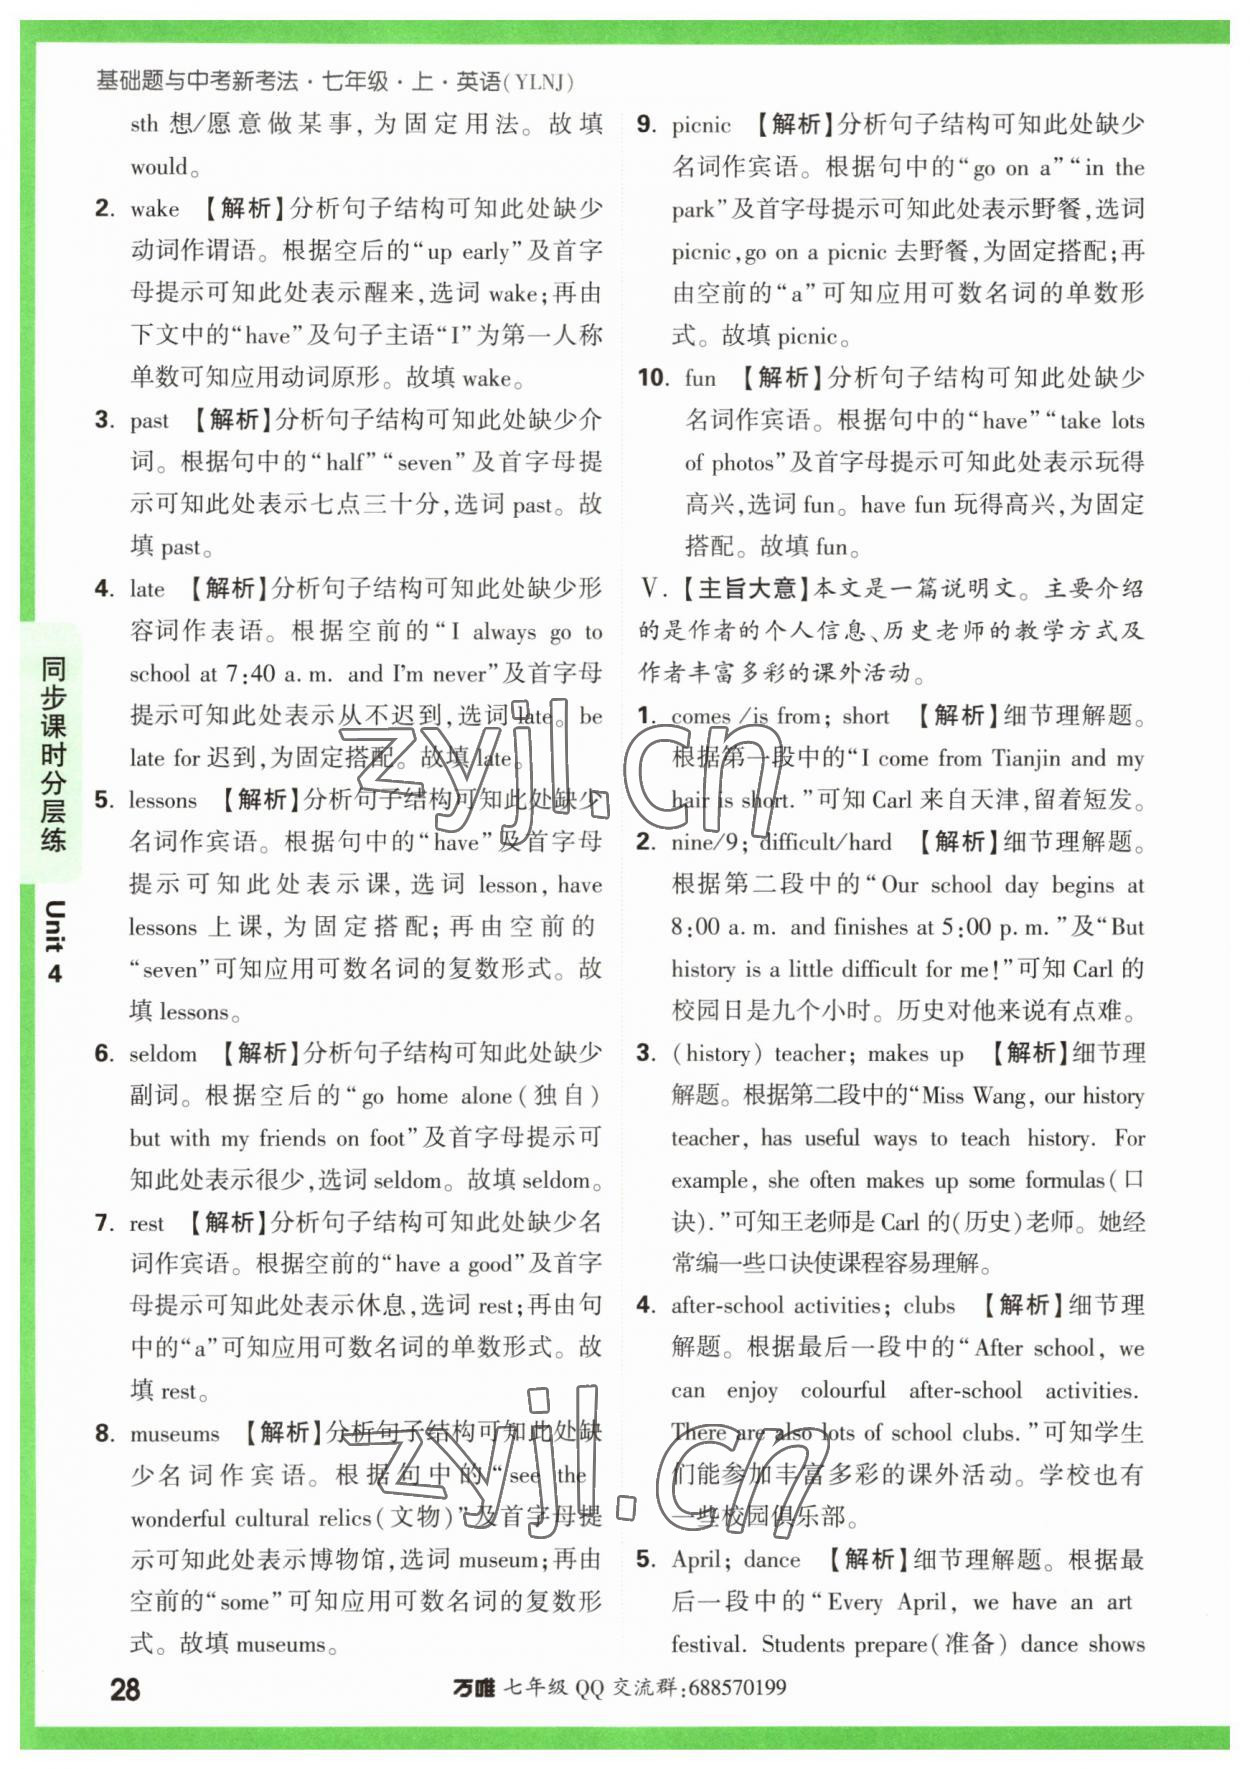 基础题与中考新考法·七年级·上·英语(YLNJ)
sth 想/愿意做某事,为固定用法。故填
would。
2. wake 【解析】分析句子结构可知此处缺少
动词作谓语。根据空后的“up early”及首字
母提示可知此处表示醒来,选词 wake;再由
下文中的“have”及句子主语“I”为第一人称
单数可知应用动词原形。故填 wake。
3. past 【解析】分析句子结构可知此处缺少介
词。根据句中的“half”“seven”及首字母提
示可知此处表示七点三十分,选词 past。故
填 past。
4. late 【解析】分析句子结构可知此处缺少形
容词作表语。根据空前的“I always go to
school at 7:40 a.m. and I'm never”及首字母
提示可知此处表示从不迟到,选词 late。be
late for 迟到,为固定搭配。故填 late。
5. lessons 【解析】分析句子结构可知此处缺少
名词作宾语。根据句中的“have”及首字母
提示可知此处表示课,选词 lesson, have
lessons 上课,为固定搭配;再由空前的
“seven”可知应用可数名词的复数形式。故
填 lessons。
6. seldom 【解析】分析句子结构可知此处缺少
副词。根据空后的“go home alone(独自)
but with my friends on foot”及首字母提示可
知此处表示很少,选词 seldom。故填 seldom。
7. rest 【解析】分析句子结构可知此处缺少名
词作宾语。根据空前的“have a good”及首字
母提示可知此处表示休息,选词 rest;再由句
中的“a”可知应用可数名词的单数形式。故
填 rest。
8. museums 【解析】分析句子结构可知此处缺
少名词作宾语。根据句中的“see the
wonderful cultural relics(文物)”及首字母提
示可知此处表示博物馆,选词 museum;再由
空前的“some”可知应用可数名词的复数形
式。故填 museums。
9. picnic 【解析】分析句子结构可知此处缺少
名词作宾语。根据句中的“go on a”“in the
park”及首字母提示可知此处表示野餐,选词
picnic, go on a picnic 去野餐,为固定搭配;再
由空前的“a”可知应用可数名词的单数形
式。故填 picnic。
10. fun 【解析】分析句子结构可知此处缺少
名词作宾语。根据句中的“have”“take lots
of photos”及首字母提示可知此处表示玩得
高兴,选词 fun。have fun 玩得高兴,为固定
搭配。故填 fun。
V. 【主旨大意】本文是一篇说明文。主要介绍
的是作者的个人信息、历史老师的教学方式及
作者丰富多彩的课外活动。
1. comes /is from; short 【解析】细节理解题。
根据第一段中的“I come from Tianjin and my
hair is short.”可知 Carl 来自天津,留着短发。
2. nine/9; difficult/hard 【解析】细节理解题。
根据第二段中的“Our school day begins at
8:00 a.m. and finishes at 5:00 p.m.”及“But
history is a little difficult for me!”可知 Carl 的
校园日是九个小时。历史对他来说有点难。
3. (history) teacher; makes up 【解析】细节理
解题。根据第二段中的“Miss Wang, our history
teacher, has useful ways to teach history. For
example, she often makes up some formulas(口
诀).”可知王老师是 Carl 的(历史)老师。她经
常编一些口诀使课程容易理解。
4. after-school activities; clubs 【解析】细节理
解题。根据最后一段中的“After school, we
can enjoy colourful after-school activities.
There are also lots of school clubs.”可知学生
们能参加丰富多彩的课外活动。学校也有
一些校园俱乐部。
5. April; dance 【解析】细节理解题。根据最
后一段中的“Every April, we have an art
festival. Students prepare(准备) dance shows
同步课时分层练
Unit 4
zyjl.cn
zyjl.cn
28
万唯 七年级 QQ 交流群:688570199